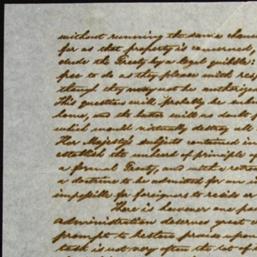 without running the same chance
for as that property is concerned,
elude the Treaty by a legal quibble:
free to do as they please with res
though they may not be authorized
This question will probably be sub
home, and the latter will no doubt
which would virtually destroy all
Her Majesty's subjects contained in
establish the unheard of principle of
a formal Treaty, and with a retro
a doctrine to be admitted for an i
impossible for foreigners to reside
There is however one
administration deserves great
prompt to bestow praise upon
task is not very often the lot of